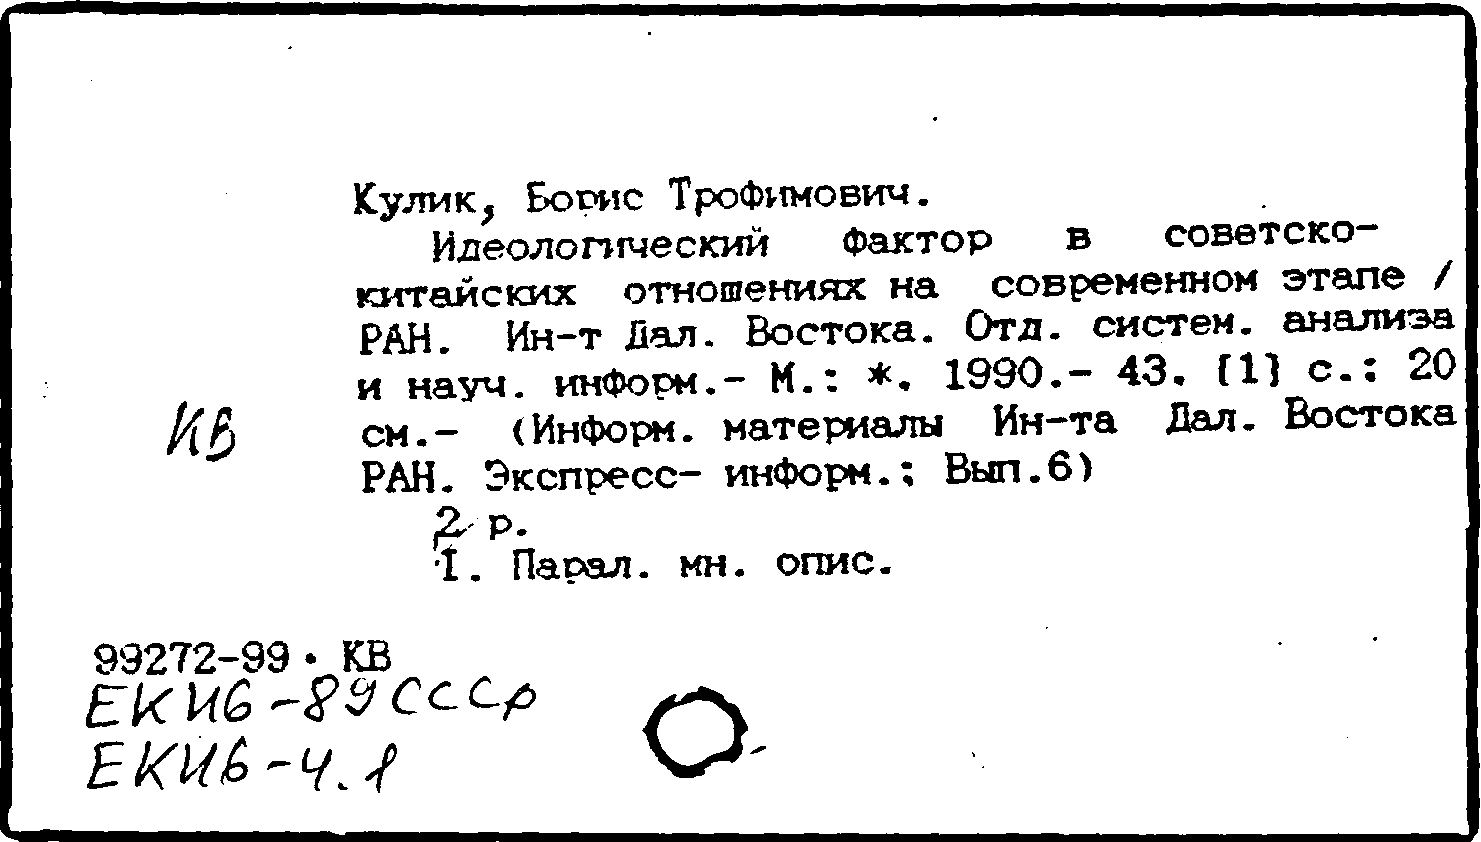 Кулик, Борис Трофимович.
Идеологический фактор в советско-
китайских отношениях на современном этапе /
РАН. Ин-т Дал. Востока. Отд. систем. анализа
и науч. информ.- М.: *, 1990.- 43, [1] с.: 20
см.- (Информ. материалы Ин-та Дал. Востока
РАН. Экспресс- информ.; Вып.6)
КВ
2 р.
1. Парал. мн. опис.
99272-99 • КВ
ЕКИ6-89СССР
ЕКИ6-4.1